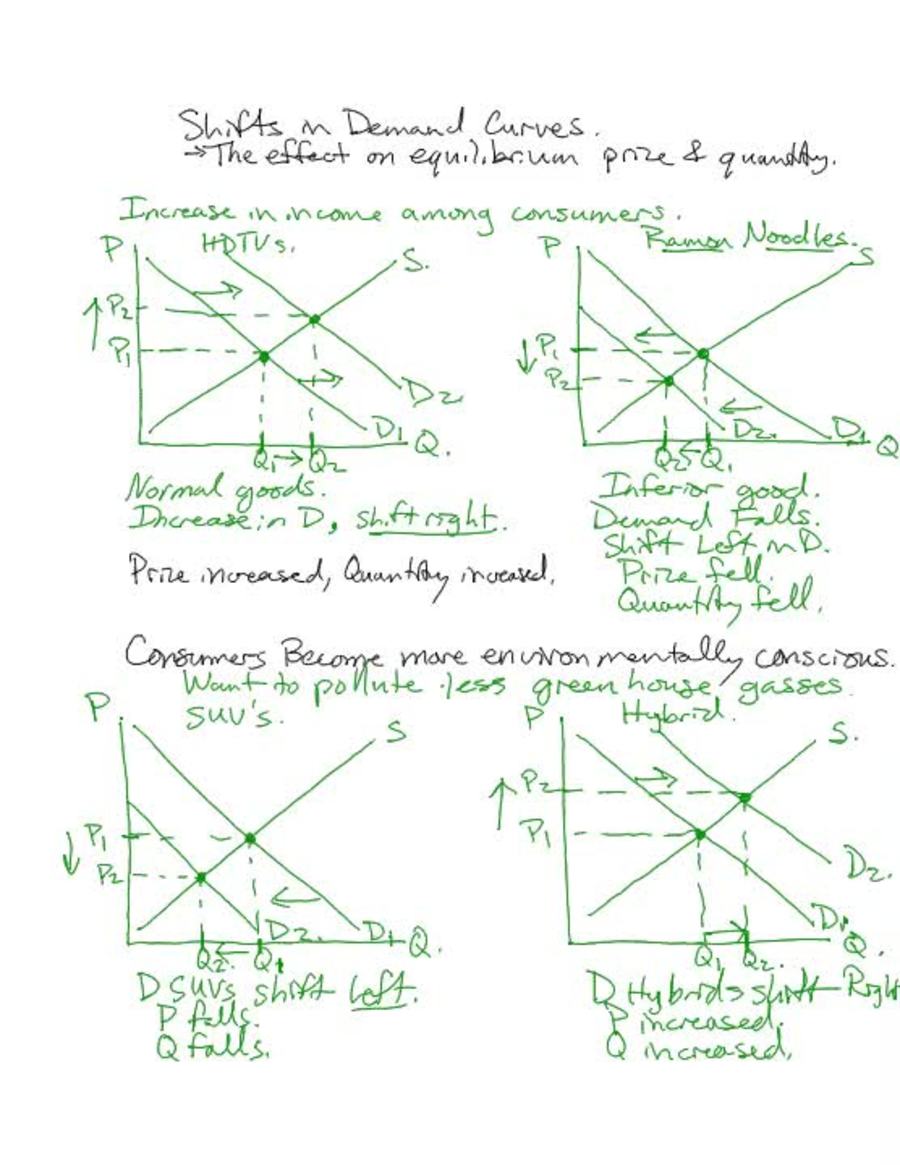 Shifts in Demand Curves.
→The effect on equilibrium prize & quantity.
Increase in income among consumers.
P HDTVs. S.
P2
P1
D2.
D1
Q.
Q1→Q2
Normal goods.
Increase in D, shift right.
Prize increased, Quantity increased.
P Ramon Noodles. S
P1
P2
D2. D1
Q
Q2←Q1
Inferior good.
Demand Falls.
Shift Left in D.
Prize fell.
Quantity fell.
Consumers Become more environmentally conscious.
Want to pollute less green house gasses.
P SUV's. S
P1
P2
D2. D1 Q.
Q2←Q1
D SUVs shift Left.
P falls.
Q falls.
P Hybrid. S.
P2
P1
D2.
D1
Q.
Q1 Q2.
D Hybrids shift Right
P increased.
Q increased.